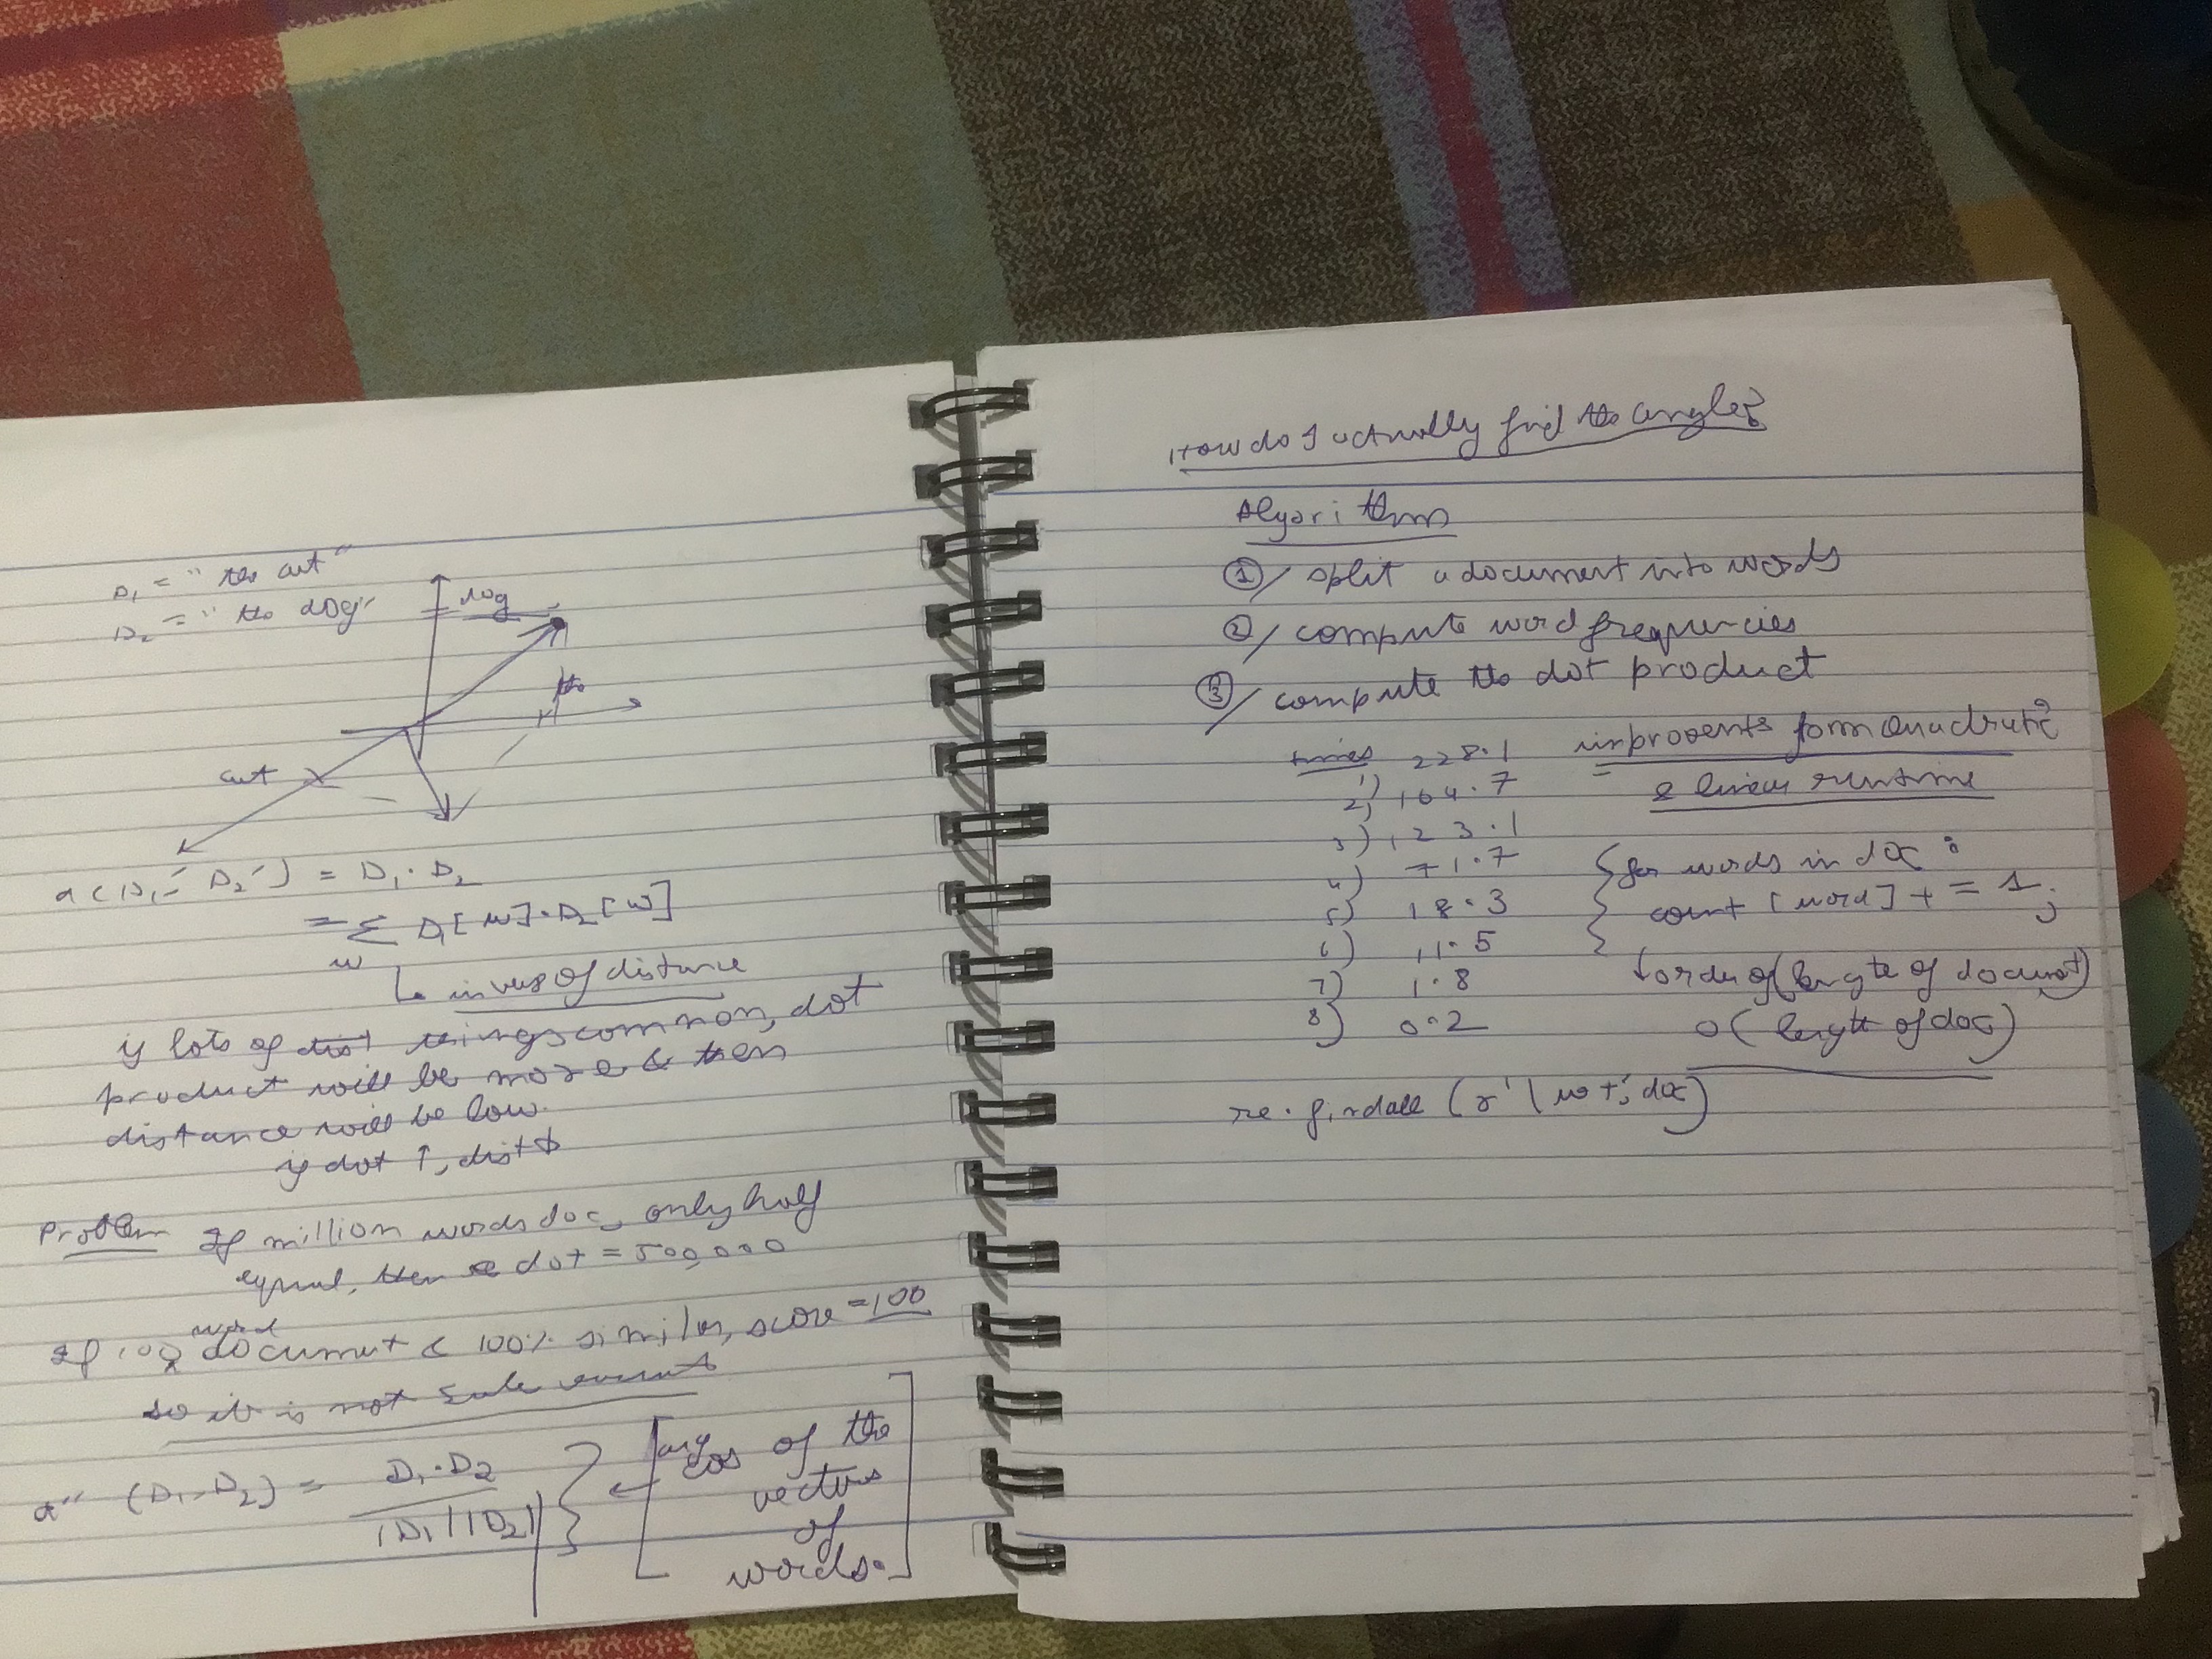 D₁ = "the cat"
D₂ = "the dog"
dog
the
cat
d(D₁, D₂) = D₁ · D₂
= Σ D₁[w] · D₂[w]
w
↳ invers of distance
if lots of things common, dot
product will be more & then
distance will be low.
if dot ↑, dist ↓
Problem If million words doc, only half
equal, then dot = 500,000
If 100 word document & 100% similar, score = 100
so it is not scale
d'' (D₁, D₂) = D₁ · D₂
|D₁| |D₂|
← [arg cos of the
vectors
of
words.]
How do I actually find the angle?
Algorithm
① / split a document into words
② / compute word frequencies
③ / compute the dot product
times
1) 228.1
2) 164.7
3) 123.1
4) 71.7
5) 18.3
6) 11.5
7) 1.8
8) 0.2
improvents form quadratic
& linear runtime
{ for words in doc :
count [word] + = 1;
↓ order of (length of document)
O( length of doc)
re.findall (r'\w+', doc)